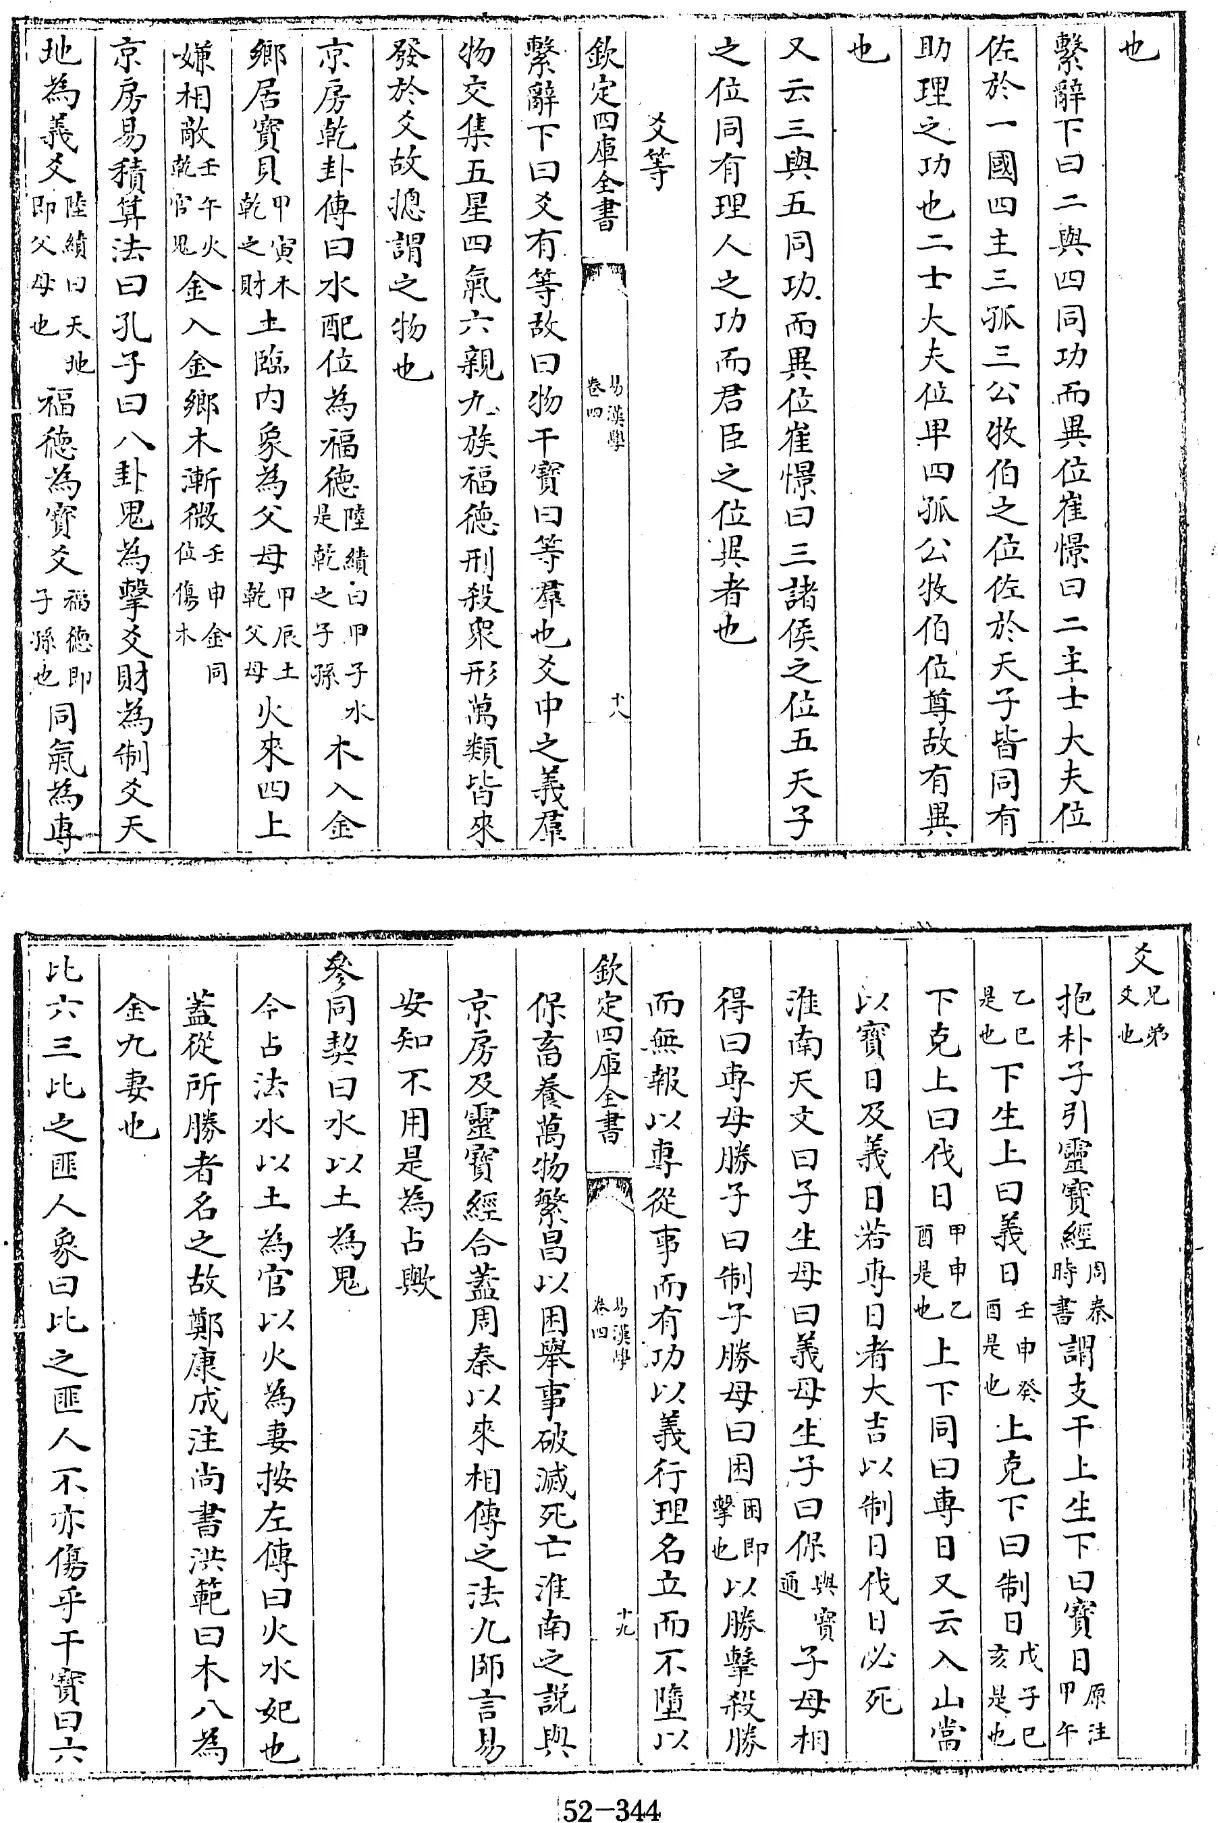 也
繫辭下曰二與四同功而異位崔憬曰二主士大夫位
佐於一國四主三孤三公牧伯之位佐於天子皆同有
助理之功也二士大夫位卑四孤公牧伯位尊故有異
也
又云三與五同功而異位崔憬曰三諸侯之位五天子
之位同有理人之功而君臣之位異者也
爻等
欽定四庫全書
易漢學
卷四
十八
繫辭下曰爻有等故曰物干寶曰等羣也爻中之義羣
物交集五星四氣六親九族福德刑殺衆形萬類皆來
發於爻故揔謂之物也
京房乾卦傳曰水配位為福德陸績曰甲子水是乾之子孫木入金
鄉居寶貝甲寅木乾之財土臨內象為父母甲辰土乾父母火來四上
嫌相敵壬午火乾官鬼金入金鄉木漸微壬申金同位傷木
京房易積算法曰孔子曰八卦鬼為擊爻財為制爻天
地為義爻陸績曰天地即父母也福德為寶爻福德即子孫也同氣為專
爻兄弟爻也
抱朴子引靈寶經周秦時書謂支干上生下曰寶日原注甲午
乙巳是也下生上曰義日壬申癸酉是也上克下曰制日戊子己亥是也
下克上曰伐日甲申乙酉是也上下同曰專日又云入山當
以寶日及義日若專日者大吉以制日伐日必死
淮南天文曰子生母曰義母生子曰保與寶通子母相
得曰專母勝子曰制子勝母曰困困即擊也以勝擊殺勝
而無報以專從事而有功以義行理名立而不墮以
欽定四庫全書
易漢學
卷四
十九
保畜養萬物繁昌以困舉事破滅死亡淮南之説與
京房及靈寶經合蓋周秦以來相傳之法九師言易
安知不用是為占歟
參同契曰水以土為鬼
今占法水以土為官以火為妻按左傳曰火水妃也
蓋從所勝者名之故鄭康成注尚書洪範曰木八為
金九妻也
比六三比之匪人象曰比之匪人不亦傷乎干寶曰六
52-344